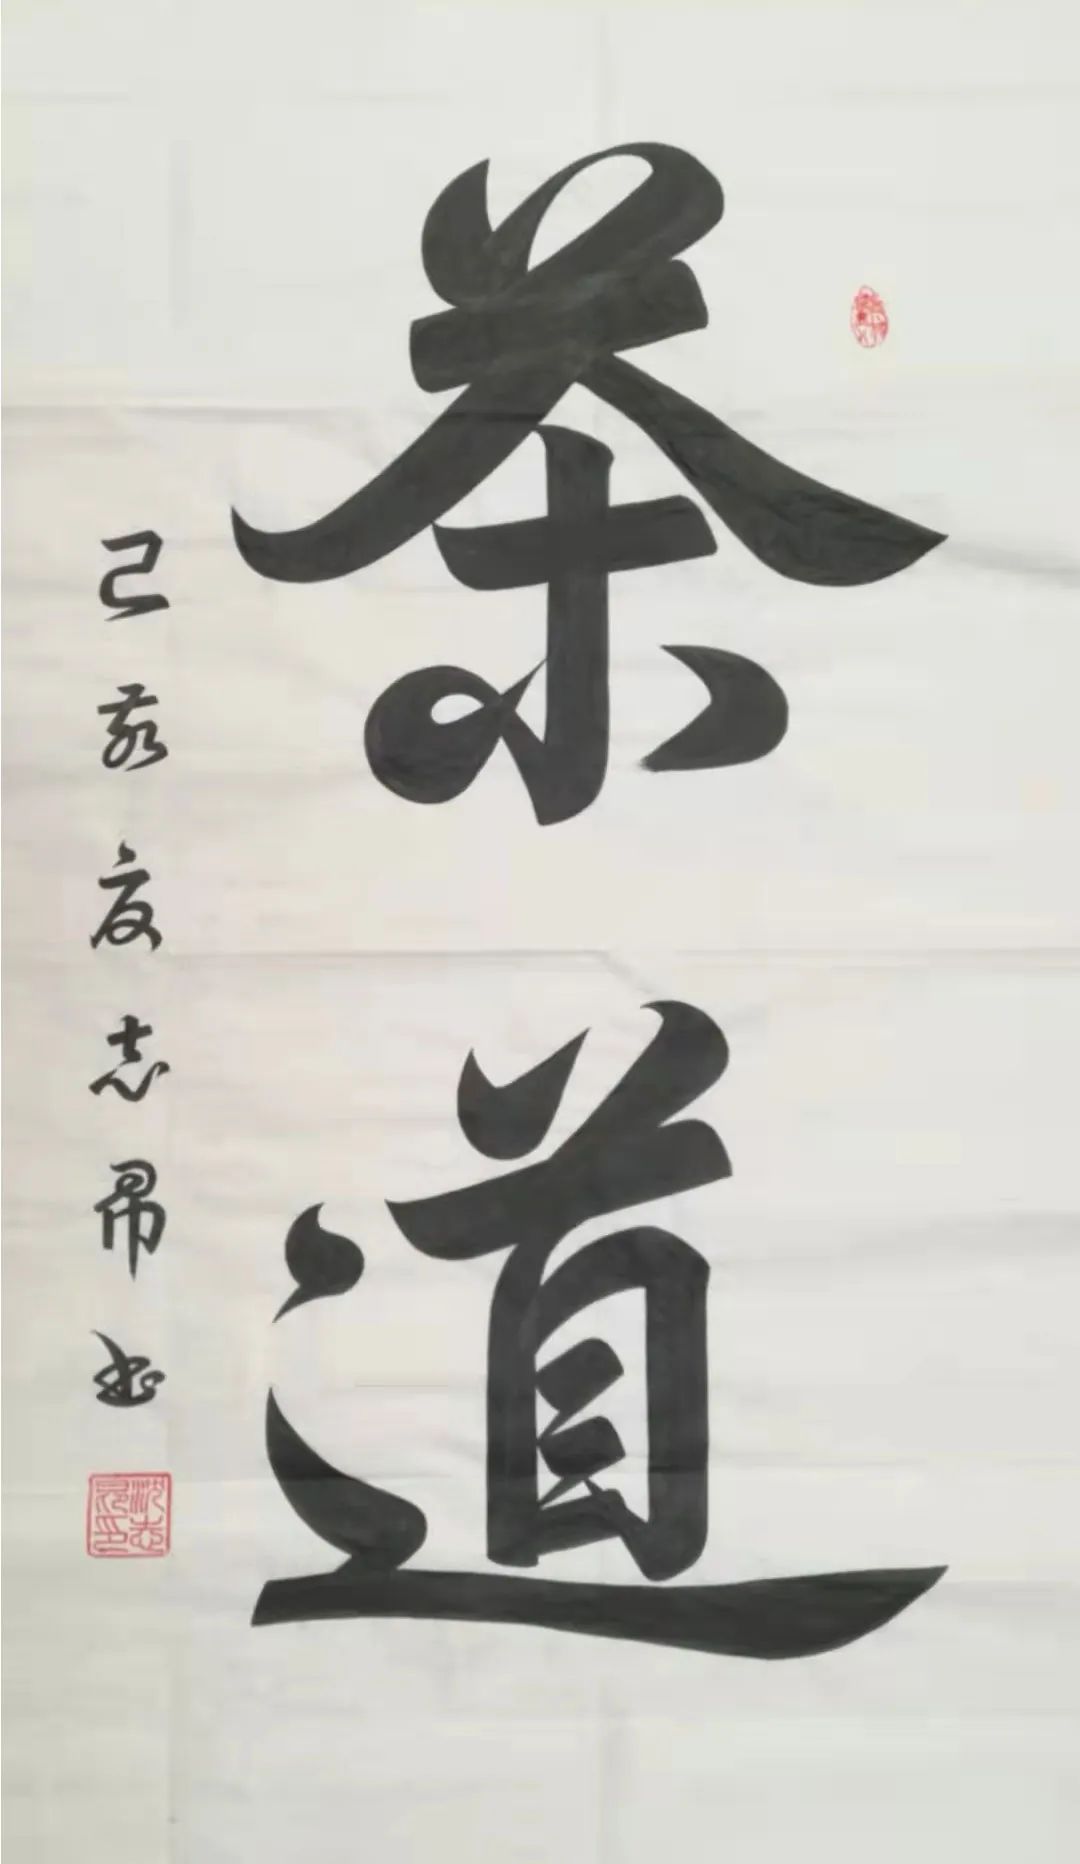 茶道
己亥夏志昂书